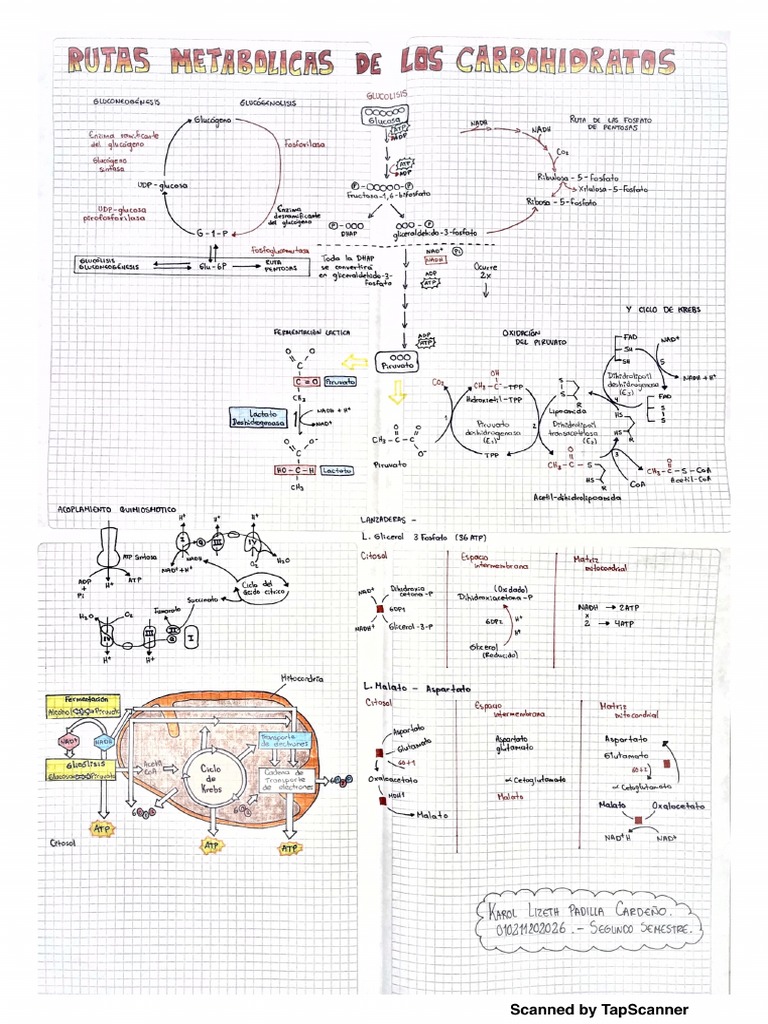 RUTAS METABOLICAS DE LOS CARBOHIDRATOS
GLUCONEOGÉNESIS
GLUCÓGENOLISIS
Glucógeno
Enzima ramificante
del glucógeno
Glucógeno
sintasa
Fosforilasa
UDP-glucosa
UDP-glucosa
pirofosforilasa
Enzima
desramificante
del glucógeno
G-1-P
Fosfoglucomutasa
GLUCÓLISIS
GLUCONEOGÉNESIS
Glu-6P
RUTA
PENTOSAS
GLUCOLISIS
Glucosa
ATP
ADP
ATP
ADP
P
P
Fructosa-1,6-bifosfato
P
DHAP
P
gliceraldehido-3-fosfato
Toda la DHAP
se convertirá
en gliceraldehido-3-
fosfato
NAD+
Pi
NADH
ADP
ATP
Ocurre
2x
ADP
ATP
Piruvato
RUTA DE LAS FOSFATO
DE PENTOSAS
NADH
NADH
CO2
Ribulosa-5-fosfato
Xilulosa-5-fosfato
Ribosa-5-fosfato
FERMENTACIÓN LACTICA
O
O
C
C=O
Piruvato
CH3
Lactato
Deshidrogenasa
NADH + H+
NAD+
O
O-
C
HO-C-H
Lactato
CH3
OXIDACIÓN
DEL PIRUVATO
Y CICLO DE KREBS
CO2
OH
CH3-C-TPP
Hidroxietil-TPP
S
S
R
Lipoamida
FAD
SH
SH
NAD+
5
NADH + H+
Dihidrolipoil
deshidrogenasa
(E3)
4
FAD
S
S
1
Piruvato
deshidrogenasa
(E1)
2
Dihidrolipoil
transacetilasa
(E2)
HS
HS
R
3
CH3
C
C
O
O
O-
Piruvato
TPP
O
CH3-C-S
HS
R
Acetil-dihidrolipoamida
CoA
O
CH3-C-S-CoA
Acetil-CoA
ACOPLAMIENTO QUIMIOSMOTICO
H+
H+
H+
I
Q
III
IV
ATP sintasa
ADP
+
Pi
H+
ATP
NADH
NAD+ + H+
O2
H2O
Ciclo del
ácido cítrico
Succinato
Fumarato
H2O
O2
IV
III
II
Q
I
H+
H+
LANZADERAS -
L. Glicerol 3 Fosfato (36 ATP)
Citosol
Espacio
intermembrana
Matriz
mitocondrial
NAD+
Dihidroxia
cetona-P
GDP1
NADH+
Glicerol-3-P
(Oxidado)
Dihidroxiacetona-P
GDP2
H+
H+
Glicerol
(Reducido)
NADH → 2ATP
x
2 → 4ATP
L. Malato - Aspartato
Citosol
Espacio
intermembrana
Matriz
mitocondrial
Aspartato
Glutamato
GOT1
Oxaloacetato
MDH1
Malato
Aspartato
glutamato
∝ Cetoglutamato
Malato
Aspartato
Glutamato
GOT2
∝ Cetoglutamato
Malato
Oxalacetato
NAD+H
NAD+
Mitocondria
Fermentación
Alcohol
Piruvato
NAD+
NADH
GLUCÓLISIS
Glucosa
Piruvato
Acetil
CoA
Ciclo
de
Krebs
Transporte
de electrones
Cadena de
Transporte
de electrones
ATP
ATP
ATP
Citosol
KAROL LIZETH PADILLA CARDEÑO.
010211202026. - SEGUNDO SEMESTRE.
Scanned by TapScanner